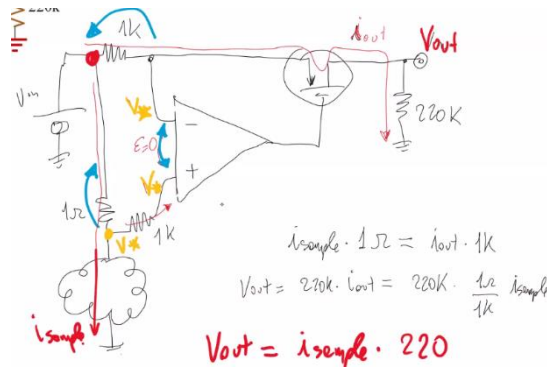 220K
1K
iout
Vout
Vin
V*
−
220K
ε=0
+
V*
1Ω
V*
1K
isample · 1Ω = iout · 1K
Vout = 220K · iout = 220K · 1Ω/1K isample
isample
Vout = isample · 220